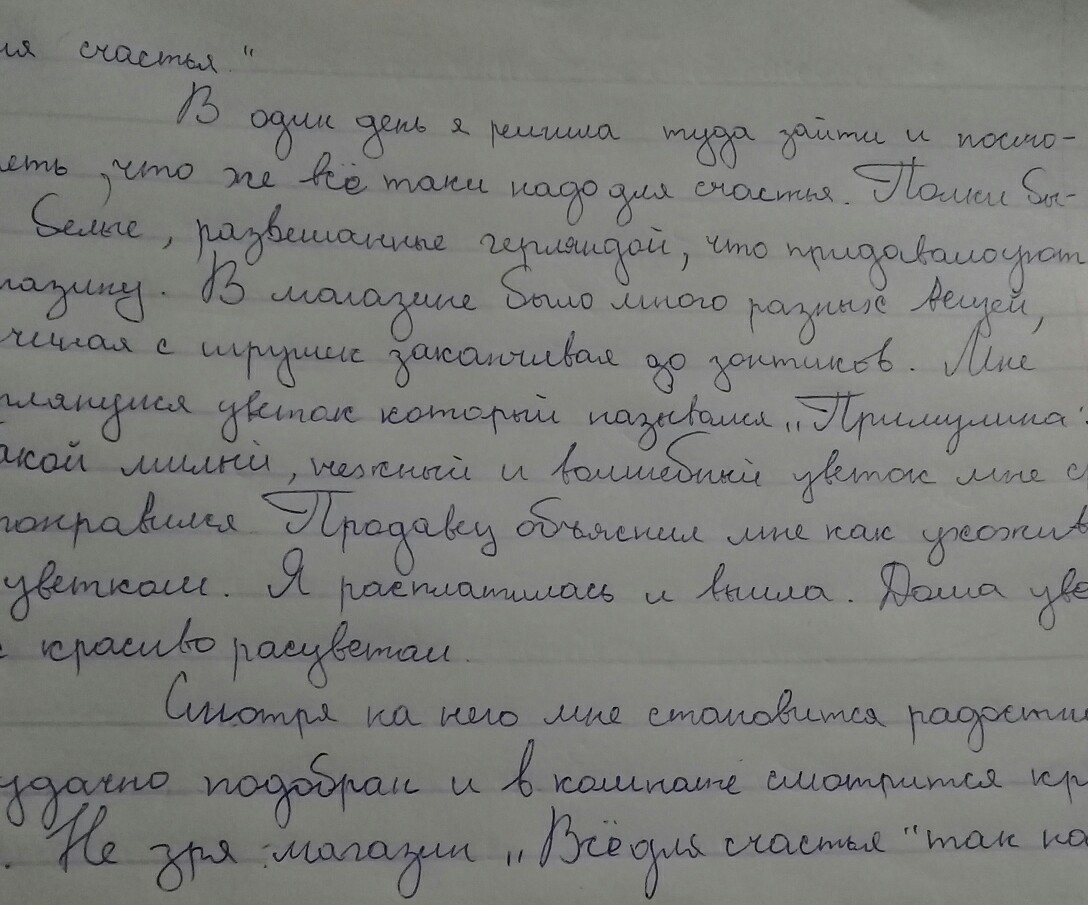 ия счастья."
В один день я решила туда зайти и посмо-
еть, что же всё таки надо для счастья. Полки бы-
белые, развешанные герляндой, что придавало уют
газину. В магазине было много разных вещей,
чиная с игрушек заканчивая до зонтиков. Мне
глянулся цветок который назывался „Примулина".
акой милый, нежный и волшебный цветок мне с
понравился Продавец объяснил мне как ухожив
цветком. Я расплатилась и вышла. Дома цве
красиво расцветал.
Смотря на него мне становится радостн
удачно подобран и в комнате смотрится кр
. Не зря магазин „Всё для счастья" так на